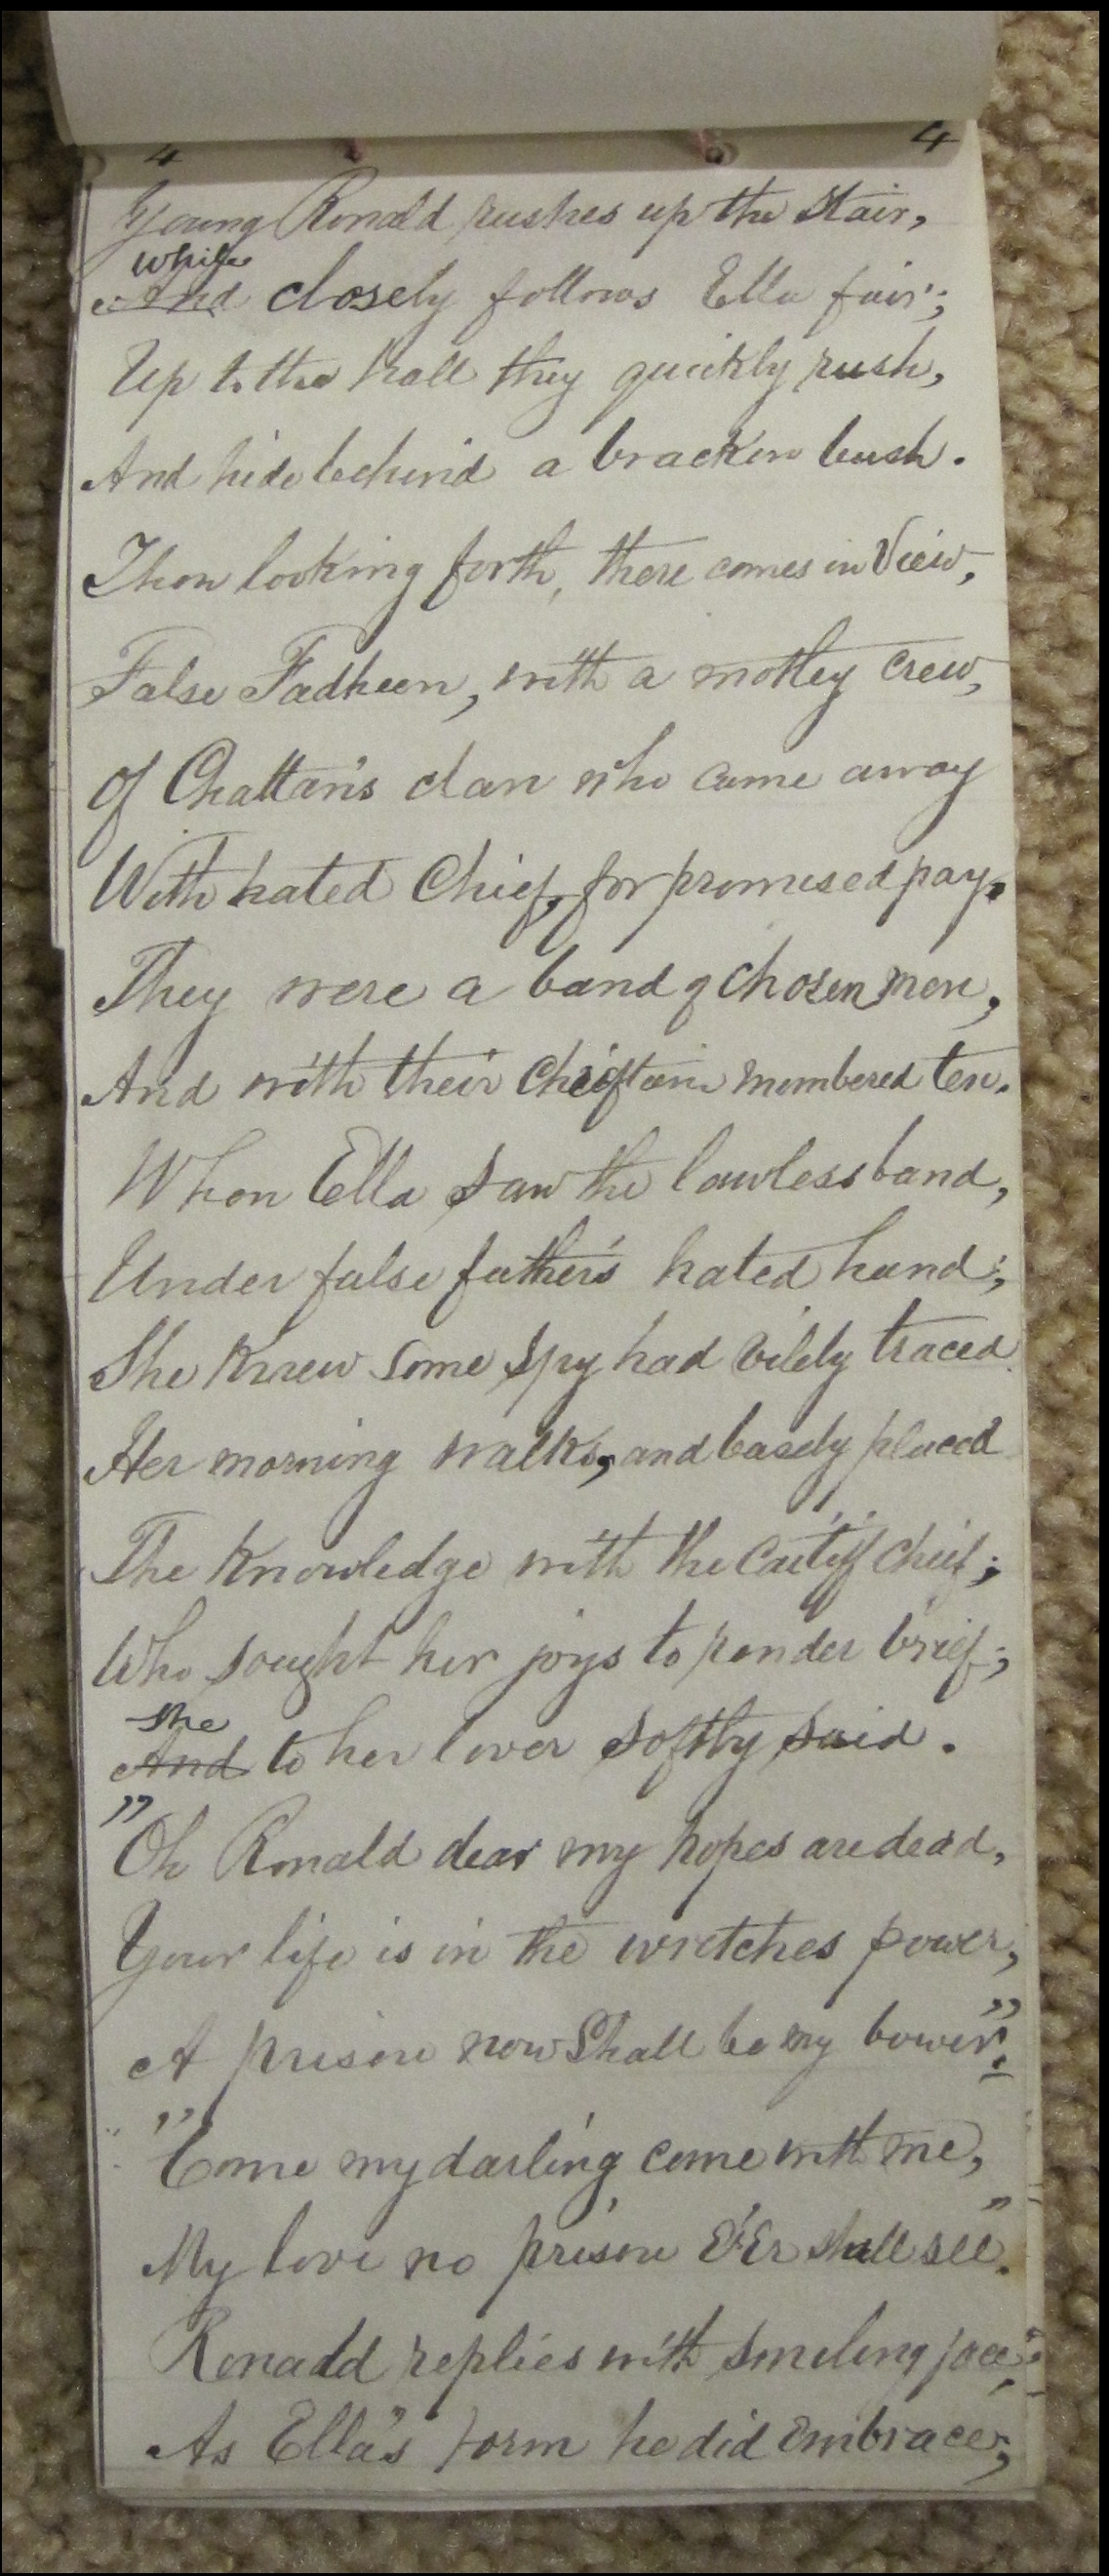 4 4
Young Ronald rushes up the stair,
while
And closely follows Ella fair;
Up to the hall they quickly rush,
And hide behind a bracken bush.
Then looking forth, there comes in View,
False Fadheen, with a motley crew,
Of Chattan's clan who came away
With hated Chief, for promised pay.
They were a band of chosen men,
And with their Chieftain numbered ten.
When Ella saw the lawless band,
Under false father's hated hand;
She knew some spy had vilely traced
Her morning walks, and basely placed
The knowledge with the Caitiff chief;
Who sought her joys to render brief;
she
And to her lover softly said.
"Oh Ronald dear my hopes are dead,
Your life is in the wretches power,
A prison now shall be my bower."
"Come my darling come with me,
My love no prison E'Er shall see."
Ronald replies with smiling face,
As Ella's form he did Embrace;